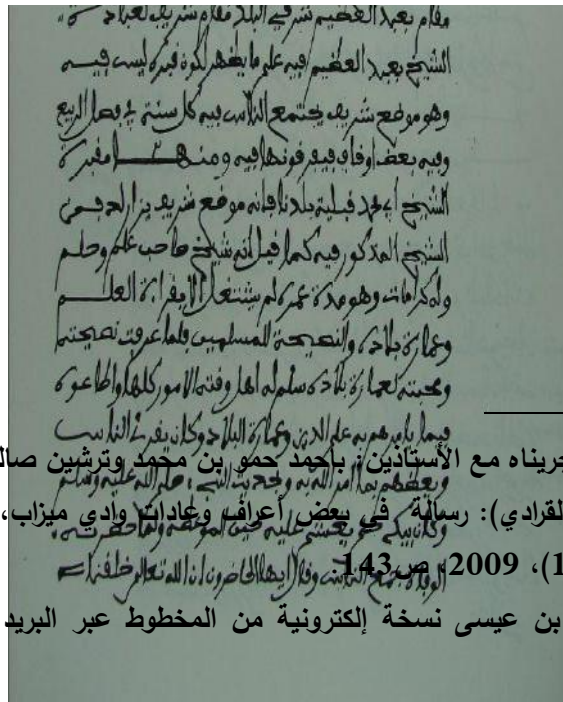 مقام بعبد العظيم شرقي البلد مقام شريف لعباد
الشيخ بعبد العظيم فيه على ما يظهر لكون قبره ليس فيه
وهو موضع شريف يجتمع الناس فيه كل سنة في فصل الربيع
وفيه بعض اوقاف يفرقونها فيه ومنها مقبرة
الشيخ ابي محمد قبلية بلدنا فانه موضع شريف يزار
الشيخ المذكور فيه كما قيل انه شيخ صاحب علم وحلم
وله كرامات وهو مدة عمره لم يشتغل الا بقراءة العلم
وعمارة بلاده والنصيحة للمسلمين فلما عرفت نصيحته
ومحبته لعمارة بلاده سلم له اهل وقته الامور كلها واطاعوه
فيما يامرهم به على الدين وعمارة البلاد وكان يقرئ الناس
جريناه مع الأستاذين: باحمد حمو بن محمد وترشين صال
ويعظهم بما امر الله به وحديث النبي صلى الله عليه وسلم
القرادي): رسالة في بعض أعراف وعادات وادي ميزاب،
وكان يبكي حتى يغشى عليه
1)، 2009، ص143.
الوفاة جمع الناس وقال ايها الحاضرون ان الله تعالى خلقنا
بن عيسى نسخة إلكترونية من المخطوط عبر البريد